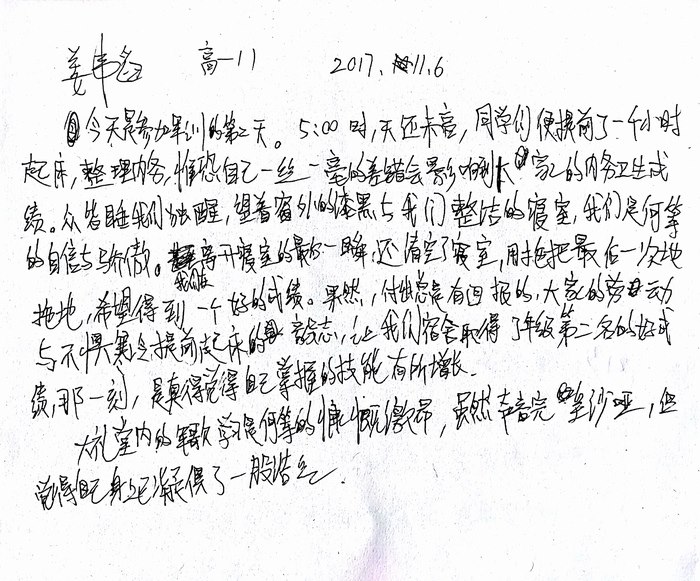 姜韦名 高一11 2017.11.6
今天是参加军训的第二天。5:00时,天还未亮,同学们便提前了一个小时
起床,整理内务,惟恐自己一丝一毫的差错会影响到大家的内务卫生成
绩。众皆睡我们独醒,望着窗外的漆黑与我们整洁的寝室,我们是何等
的自信与骄傲。离开寝室的最后一瞬,还清空了寝室,用拖把最后一次地
拖地,希望得到一个好的成绩。果然,付出总是有回报的,大家的劳动
与不惧寒冷提前起床的毅志,让我们宿舍取得了年级第二名的好成
绩,那一刻,是真得觉得自己掌握的技能有所增长.
大礼堂内的军歌学习是何等的慷慨激昂,虽然声音完全沙哑,但
觉得自己身上已凝俱了一般浩气.